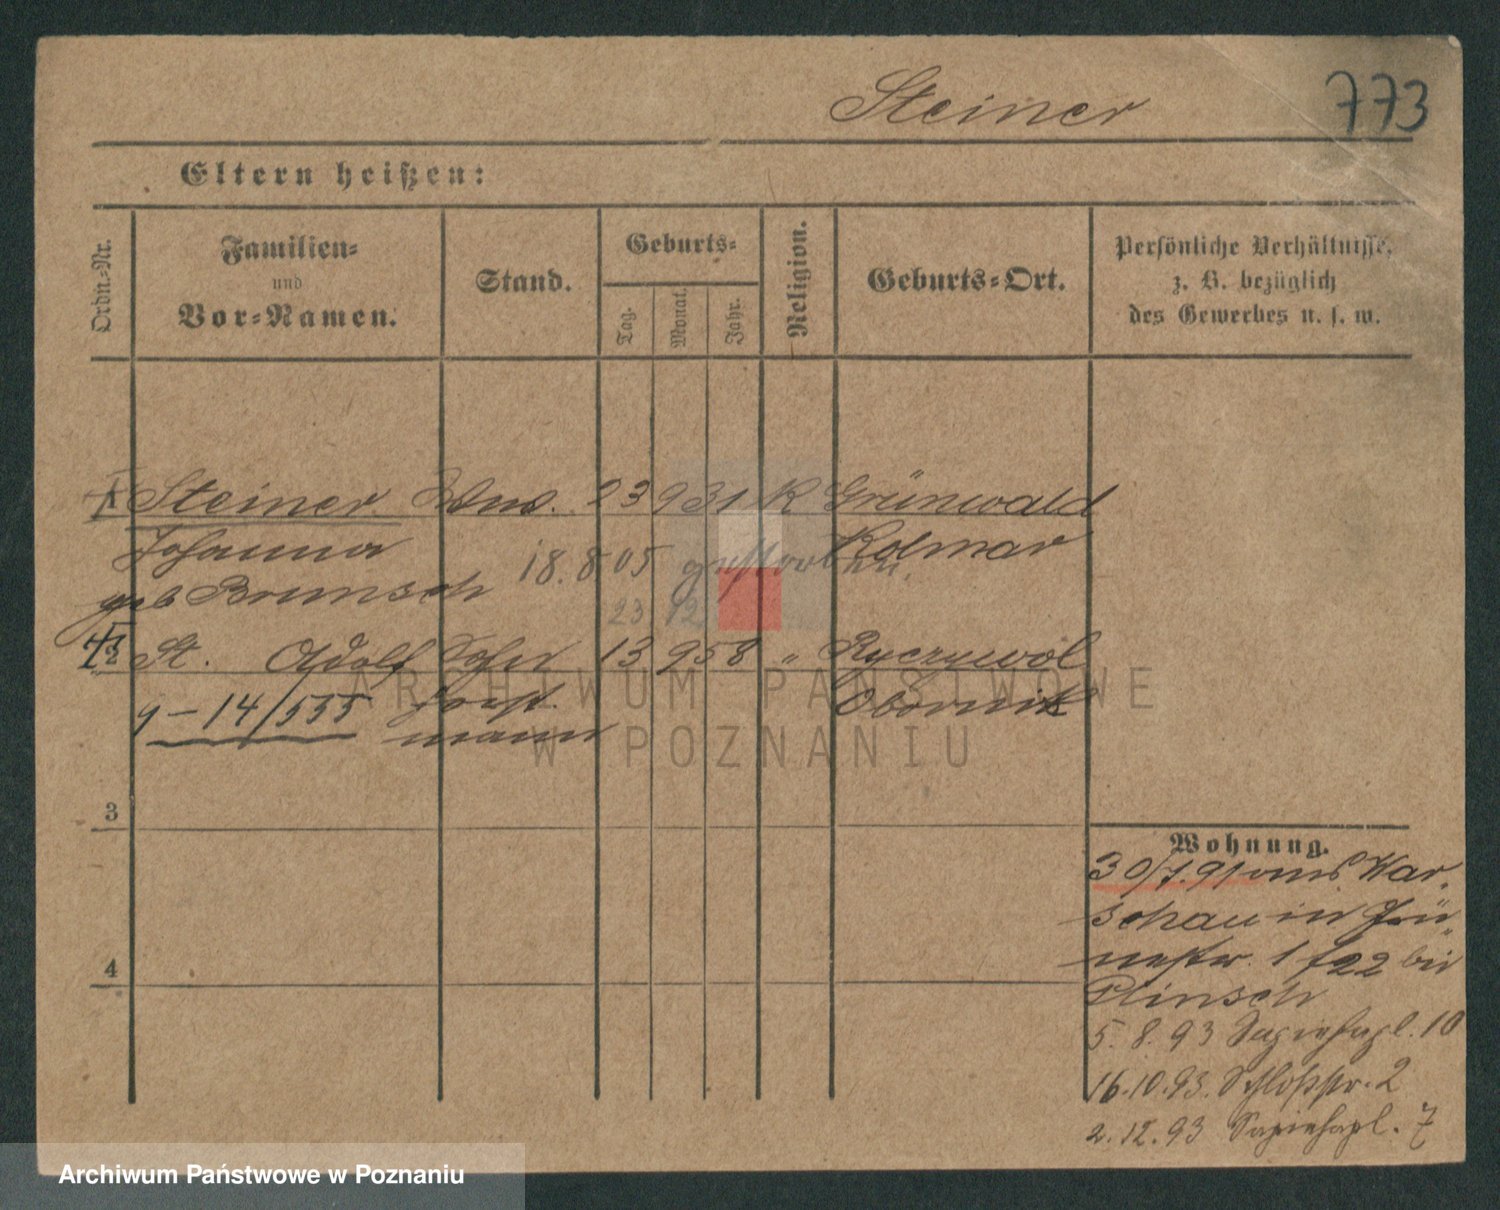 Steiner 773
Eltern heißen:
Ordn.-Nr.
Familien-
und
Vor-Namen.
Stand.
Geburts-
Tag. Monat. Jahr.
Religion.
Geburts-Ort.
Persönliche Verhältnisse,
z. B. bezüglich
des Gewerbes u. s. w.
1 Steiner Wwe. 23 9 31 K Grünwald
Johanna Kolmar
18.8.05 gestorben.
geb Brunsch
23 12
2 St. Adolf Sohn 13 9 58 " Ryczywol
9-14/555 Obornik
mann
ARCHIWUM PAŃSTWOWE
W POZNANIU
3
4
Wohnung.
30/7.91 aus War-
schau in Grü-
nestr. 1 22 bei
Plinsch
5.8.93 Sapiehapl. 10
16.10.93. Schloßstr. 2
2.12.93 Sapiehapl. 7
Archiwum Państwowe w Poznaniu